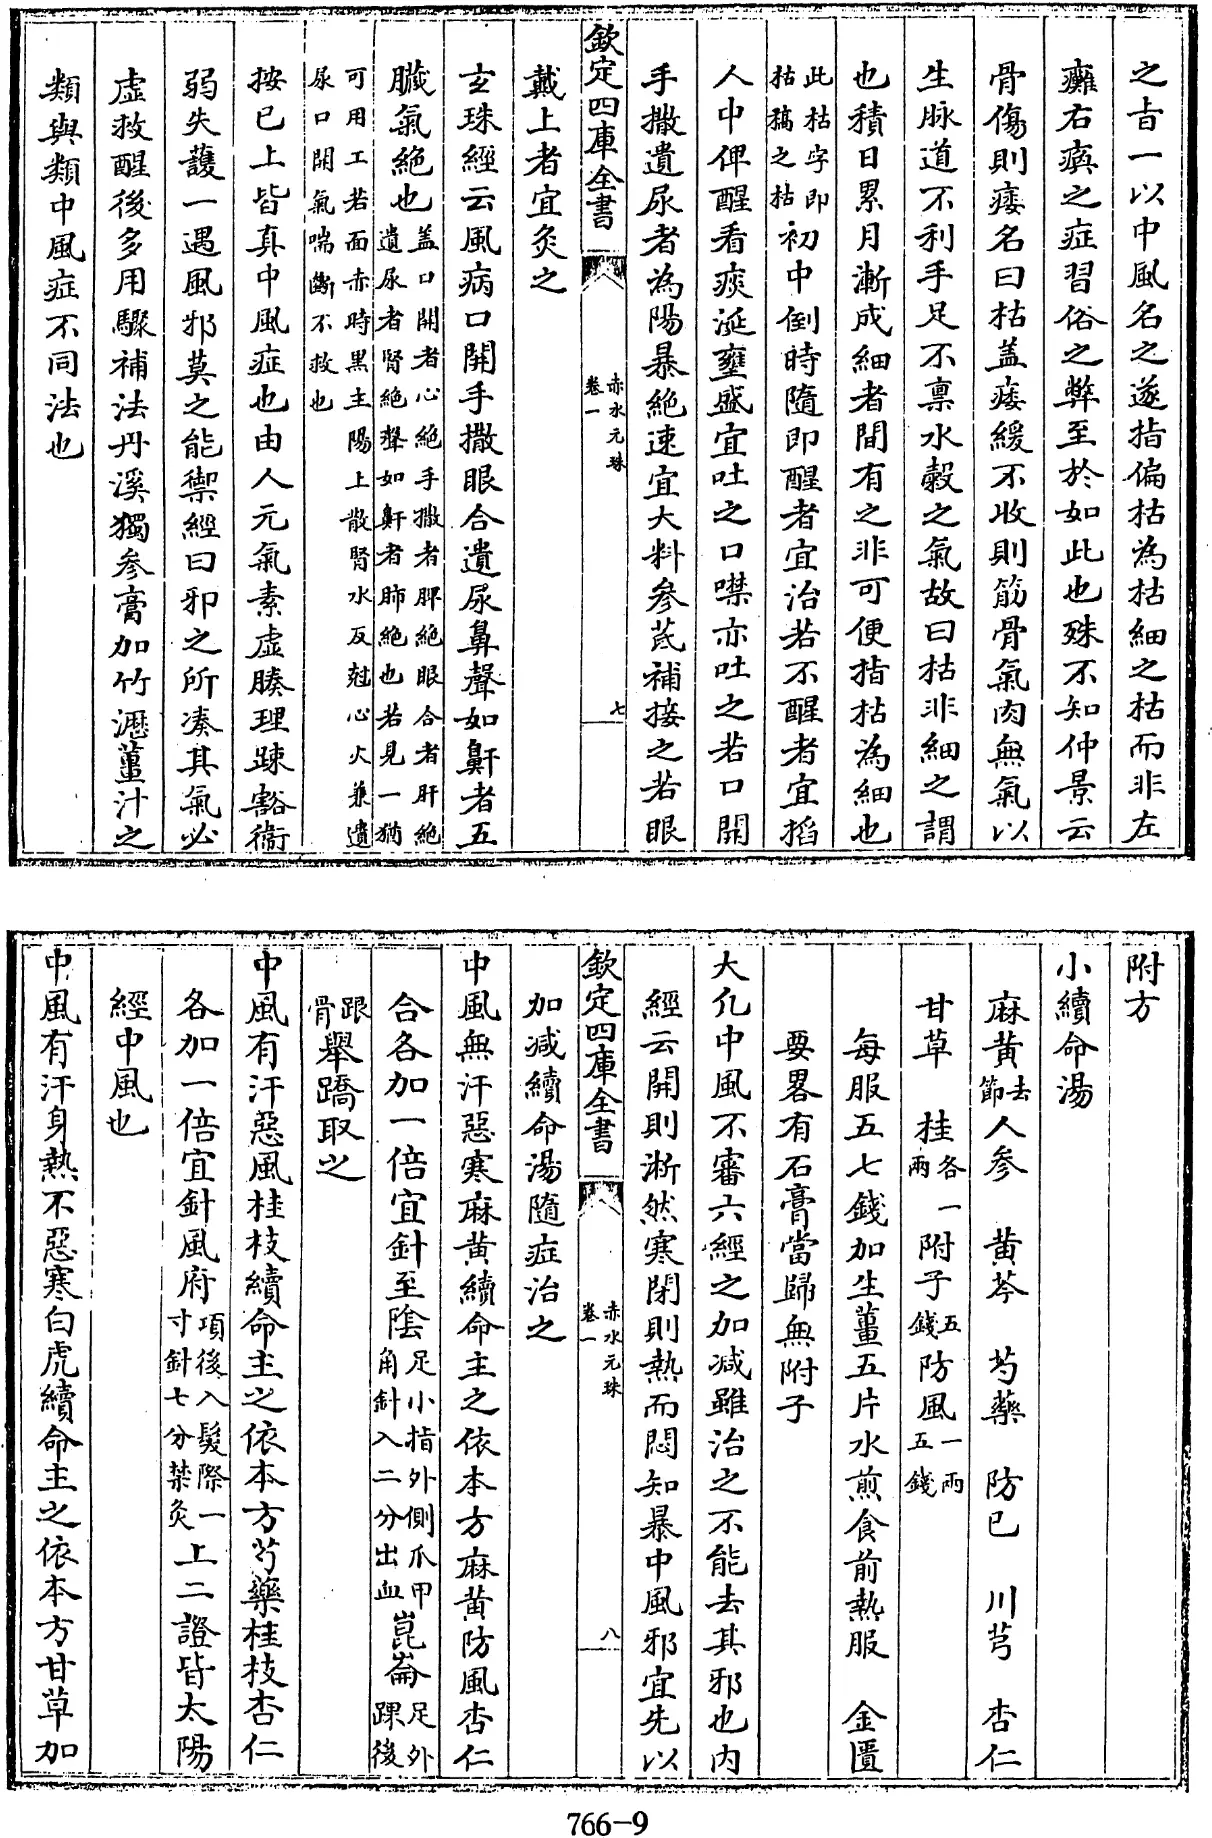 之旨一以中風名之遂指偏枯為枯細之枯而非左
癱右瘓之症習俗之弊至於如此也殊不知仲景云
骨傷則痿名曰枯盖痿緩不收則筋骨氣肉無氣以
生脉道不利手足不禀水穀之氣故曰枯非細之謂
也積日累月漸成細者間有之非可便指枯為細也
此枯字即枯稿之枯初中倒時隨即醒者宜治若不醒者宜掐
人中俾醒看痰涎壅盛宜吐之口噤亦吐之若口開
手撒遺尿者為陽暴絶速宜大料參芪補接之若眼
欽定四庫全書 赤水元珠 卷一 七
戴上者宜灸之
玄珠經云風病口開手撒眼合遺尿鼻聲如鼾者五
臟氣絶也盖口開者心絶手撒者脾絶眼合者肝絶遺尿者腎絶聲如鼾者肺絶也若見一猶
可用工若面赤時黒主陽上散腎水反尅心火兼遺尿口開氣喘斷不救也
按已上皆真中風症也由人元氣素虛腠理踈豁衞
弱失護一遇風邪莫之能禦經曰邪之所凑其氣必
虛救醒後多用驟補法丹溪獨參膏加竹瀝薑汁之
類與類中風症不同法也
附方
小續命湯
麻黄去節 人參 黄芩 芍藥 防已 川芎 杏仁
甘草 桂各一兩 附子五錢 防風一兩五錢
每服五七錢加生薑五片水煎食前熱服 金匱
要畧有石膏當歸無附子
大凡中風不審六經之加减雖治之不能去其邪也内
經云開則淅然寒閉則熱而悶知暴中風邪宜先以
欽定四庫全書 赤水元珠 卷一 八
加减續命湯隨症治之
中風無汗惡寒麻黄續命主之依本方麻黄防風杏仁
合各加一倍宜針至陰足小指外側爪甲角針入二分出血崑崙足外踝後
跟骨舉蹻取之
中風有汗惡風桂枝續命主之依本方芍藥桂枝杏仁
各加一倍宜針風府項後入髮際一寸針七分禁灸上二證皆太陽
經中風也
中風有汗身熱不惡寒白虎續命主之依本方甘草加
766-9